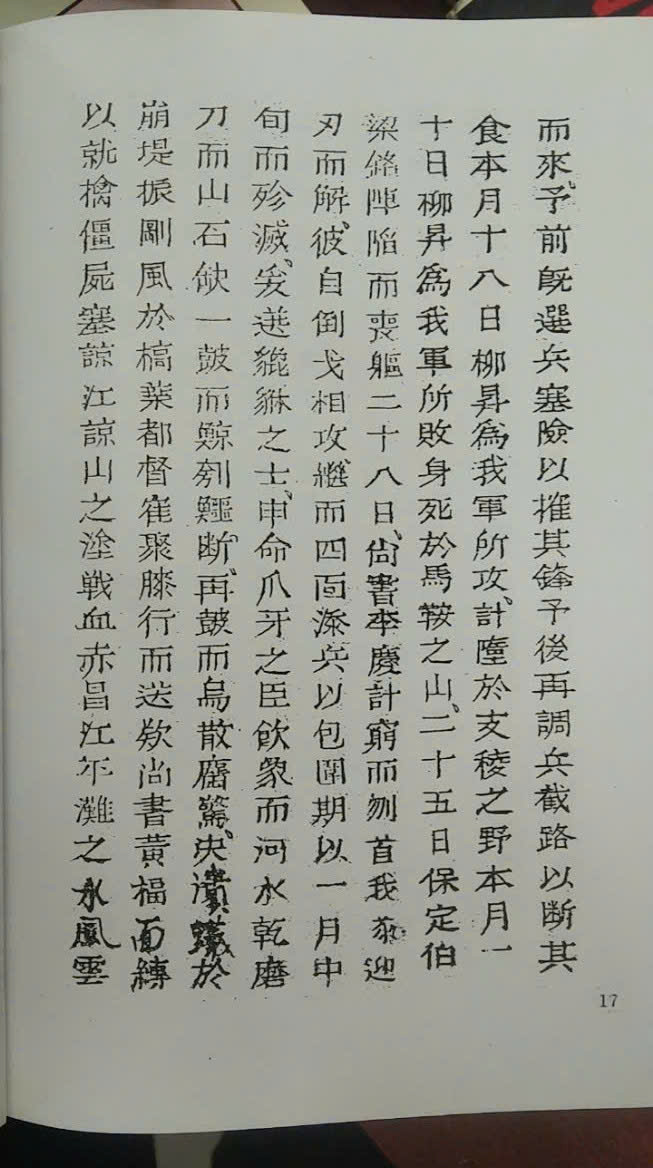 而來、予前旣選兵塞險以摧其鋒予後再調兵截路以断其
食本月十八日柳昇爲我軍所攻、計墮於支稜之野本月一
十日柳昇爲我軍所敗身死於馬鞍之山、二十五日保定伯
梁銘陣陷而喪軀二十八日、尚書李慶計窮而刎首我迎
刃而解、彼自倒戈相攻、繼而四面添兵以包圍期以一月中
旬而殄滅、爰選貔貅之士、申命爪牙之臣飲象而河水乾磨
刀而山石缺一鼓而鯨刳鱷断、再鼓而鳥散麕驚、决潰蟻於
崩堤振剛風於槁葉都督崔聚膝行而送欵尚書黄福面縳
以就擒僵屍塞諒江諒山之塗戦血赤昌江平灘之水風雲
17